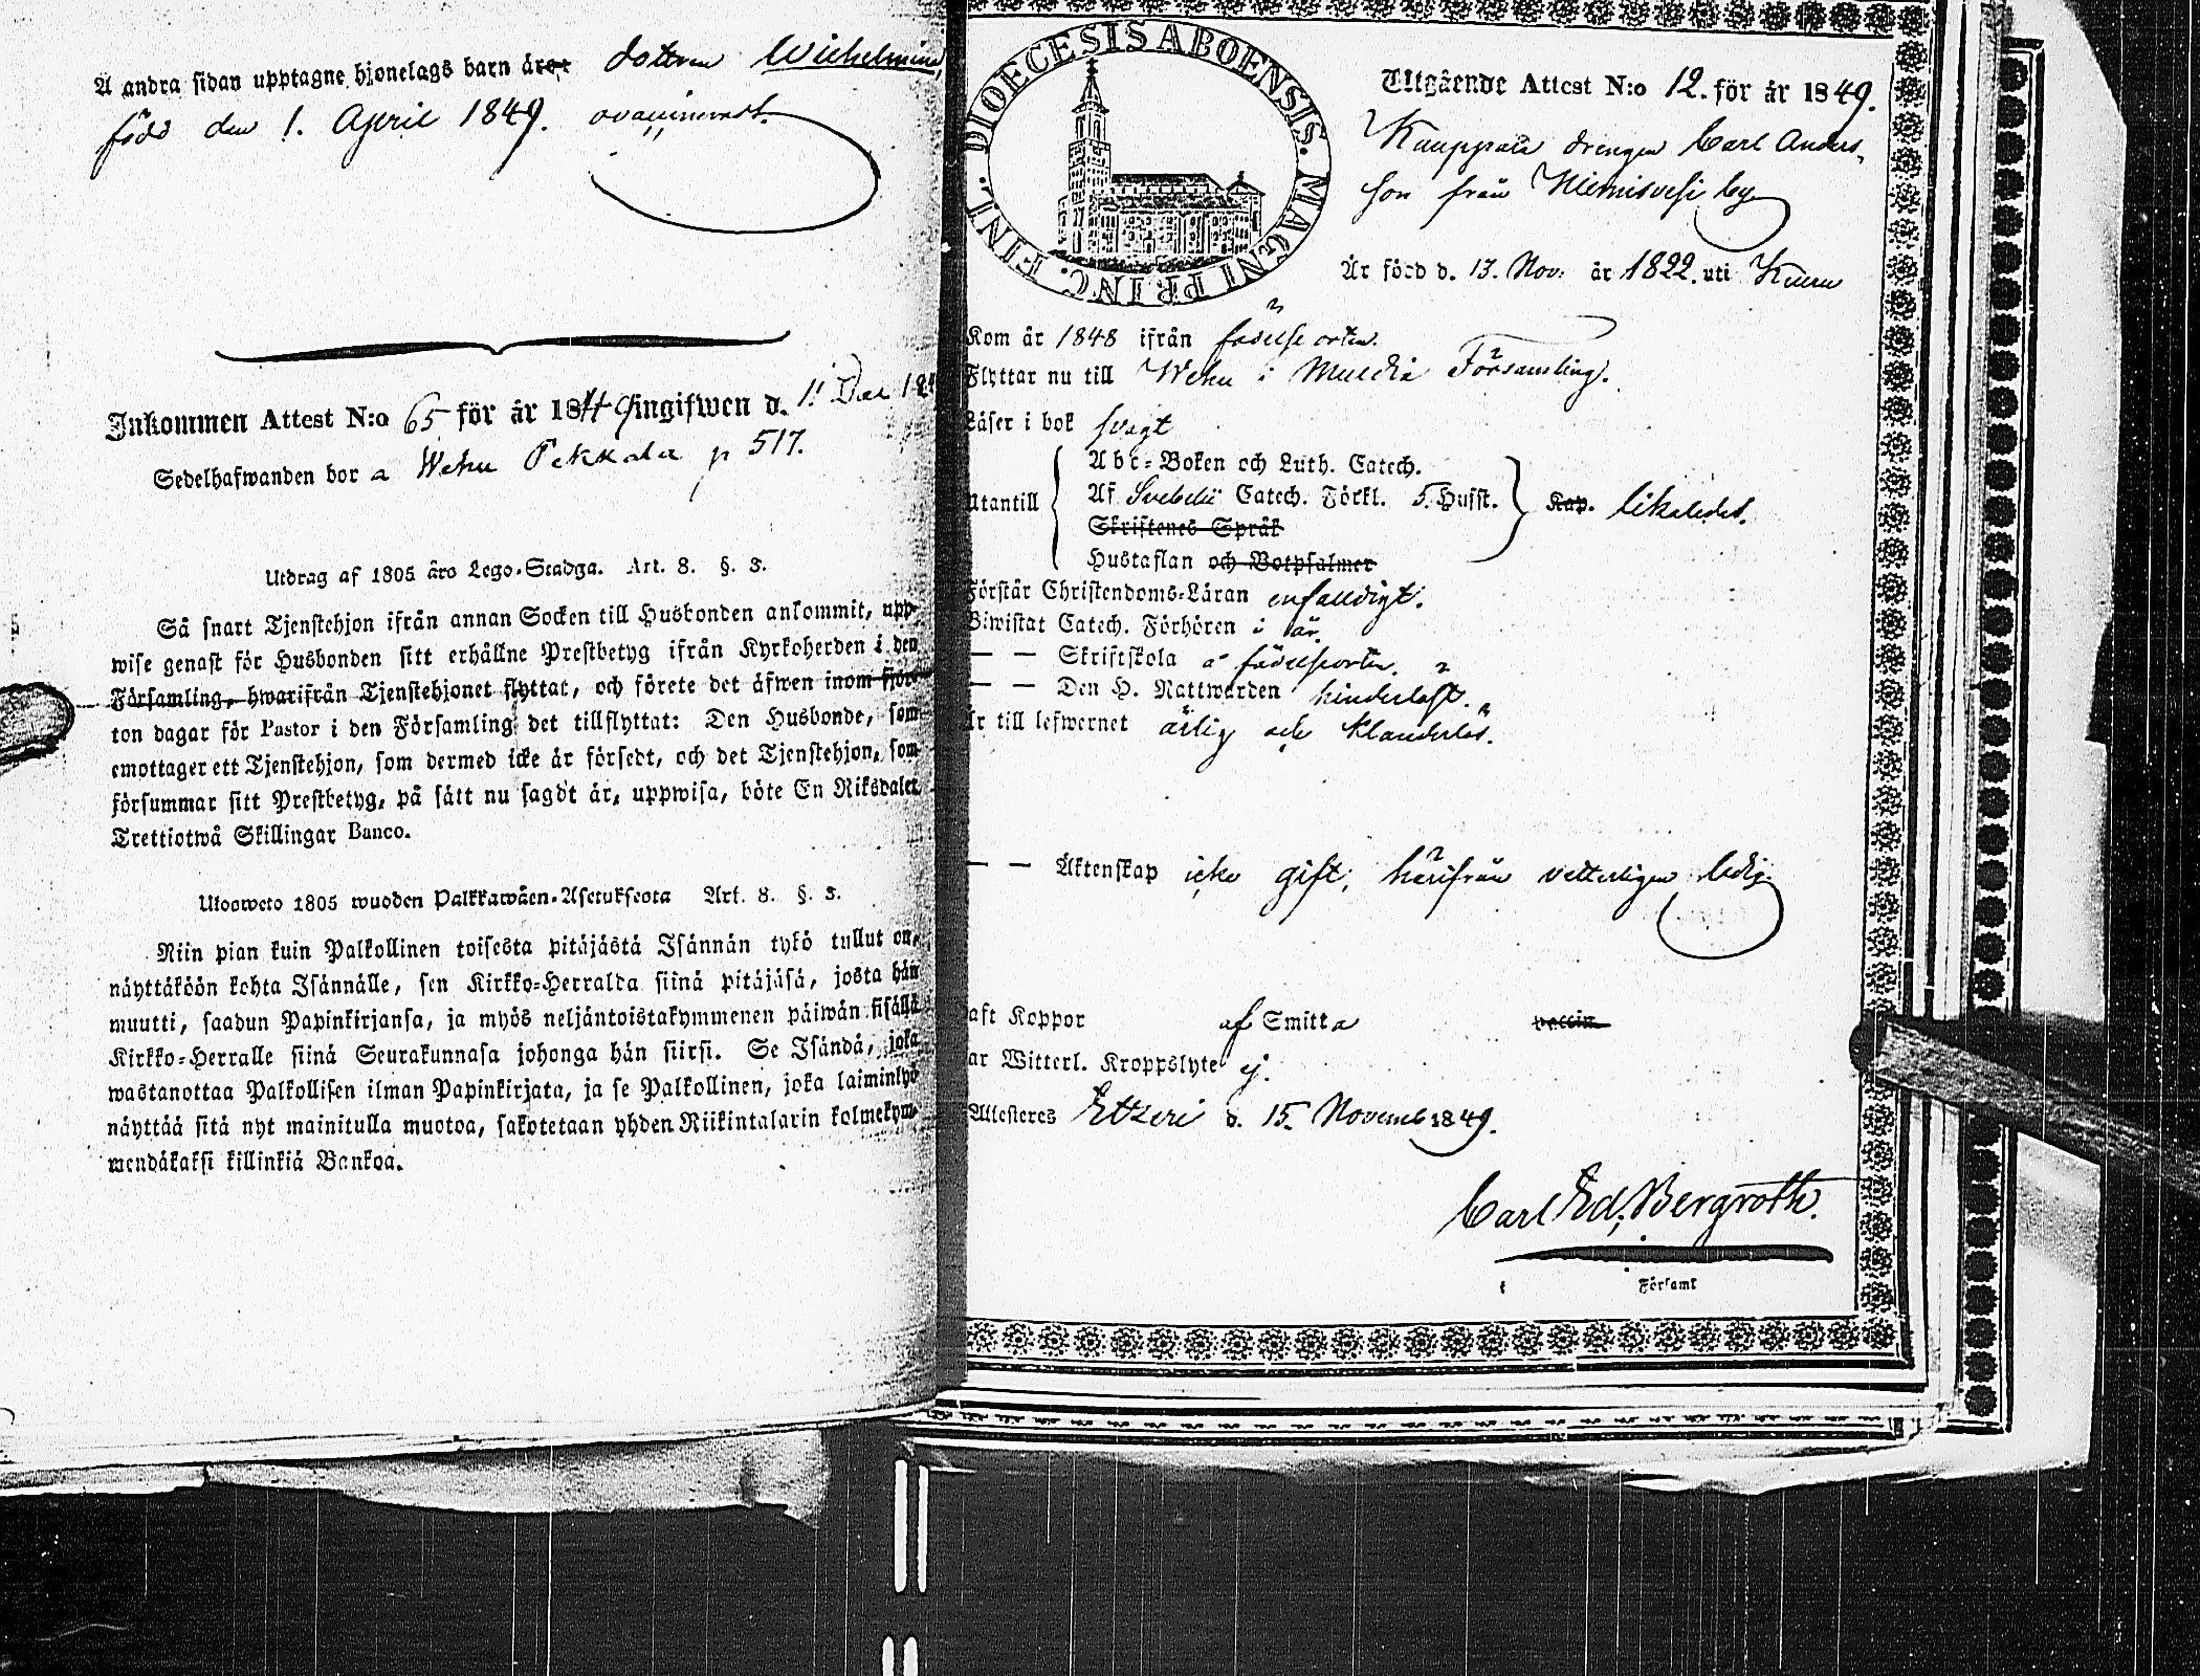 Å andra sidan upptagne hjonelags barn äro dottren Wilhelmina,
född den 1. April 1849. ovaccinerad.
Inkommen Attest N:o 65 för år 1849 ingifwen d. 1! Dec
Sedelhafwanden bor å Wehu Pekkala p 517.
Utdrag af 1805 års Lego-Stadga. Art. 8. §. 3.
Så snart Tjenstehjon ifrån annan Socken till Husbonden ankommit, upp-
wise genast för Husbonden sitt erhållne Prestbetyg ifrån Kyrkoherden i den
Församling, hwarifrån Tjenstehjonet flyttat, och förete det äfwen inom fjor-
ton dagar för Pastor i den Församling det tillflyttat: Den Husbonde, som
emottager ett Tjenstehjon, som dermed icke är försedt, och det Tjenstehjon, som
försummar sitt Prestbetyg, på sätt nu sagdt är, uppwisa, böte En Riksdaler
Trettiotwå Skillingar Banco.
Uloosweto 1805 wuoden Palkkawäen-Asetuksesta Art. 8. §. 3.
Niin pian kuin Palkollinen toisesta pitäjästä Isännän tykö tullut on,
näyttäköön kohta Isännälle, sen Kirkko-Herralda siinä pitäjäsä, josta hän
muutti, saadun Papinkirjansa, ja myös neljäntoistakymmenen päiwän sisällä
Kirkko-Herralle siinä Seurakunnasa johonga hän siirsi. Se Isändä, joka
wastanottaa Palkollisen ilman Papinkirjata, ja se Palkollinen, joka laiminlyö
näyttää sitä nyt mainitulla muotoa, sakotetaan yhden Riikintalarin kolmekym-
mendäkaksi killinkiä Bankoa.
DIOECESIS ABOENSIS. MAGNI PRINC. FINL.
Utgående Attest N:o 12. för år 1849.
drengen Carl Anders-
son från Niemisvesi by
Är född d. 13. Nov. år 1822. uti
Kom år 1848 ifrån födelse orten.
Flyttar nu till Wehu i Muldia Församling.
Läser i bok svagt
Abc-Boken och Luth. Catech.
Utantill Af Svebelii Catech. Förkl. 5. Hufst. Kap. likaledes.
Skriftenes Språk
Hustaflan och Botpsalmer
Förstår Christendoms-Läran enfaldigt.
Biwistat Catech. Förhören i år.
— — Skriftskola å födelseorten.
— — Den H. Nattwarden hinderlöst.
Är till lefwernet ärlig och klanderlös.
— — Äktenskap icke gift, härifrån vetterligen ledig.
aft Koppor af Smitta vaccin
ar Witterl. Kroppslyte ej.
Attesteres Etzeri d. 15. Novemb 1849.
Carl Ed. Bergroth.
Församl